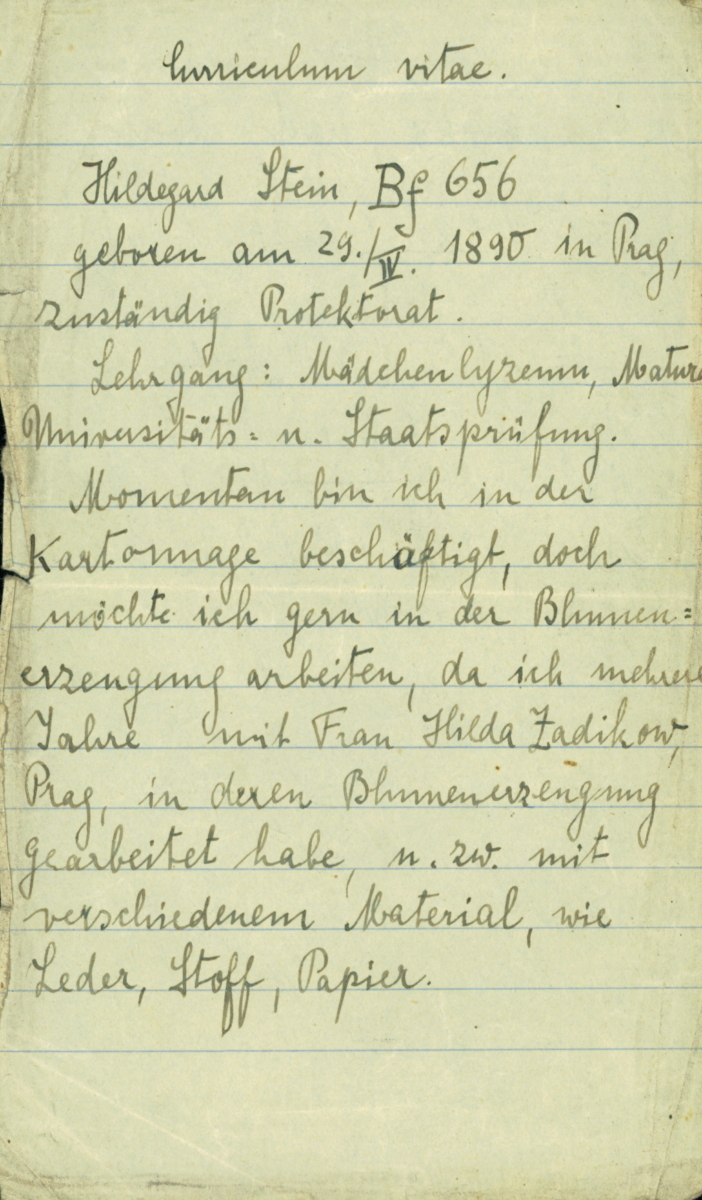 Curriculum vitae.
Hildegard Stein, Bf 656
geboren am 29./IV. 1890 in Prag,
zuständig Protektorat.
Lehrgang: Mädchenlyzeum, Matura
Universitäts= u. Staatsprüfung.
Momentan bin ich in der
Kartonnage beschäftigt, doch
möchte ich gern in der Blumen=
erzeugung arbeiten, da ich mehrere
Jahre mit Frau Hilda Zadikow,
Prag, in deren Blumenerzeugung
gearbeitet habe, u. zw. mit
verschiedenem Material, wie
Leder, Stoff, Papier.